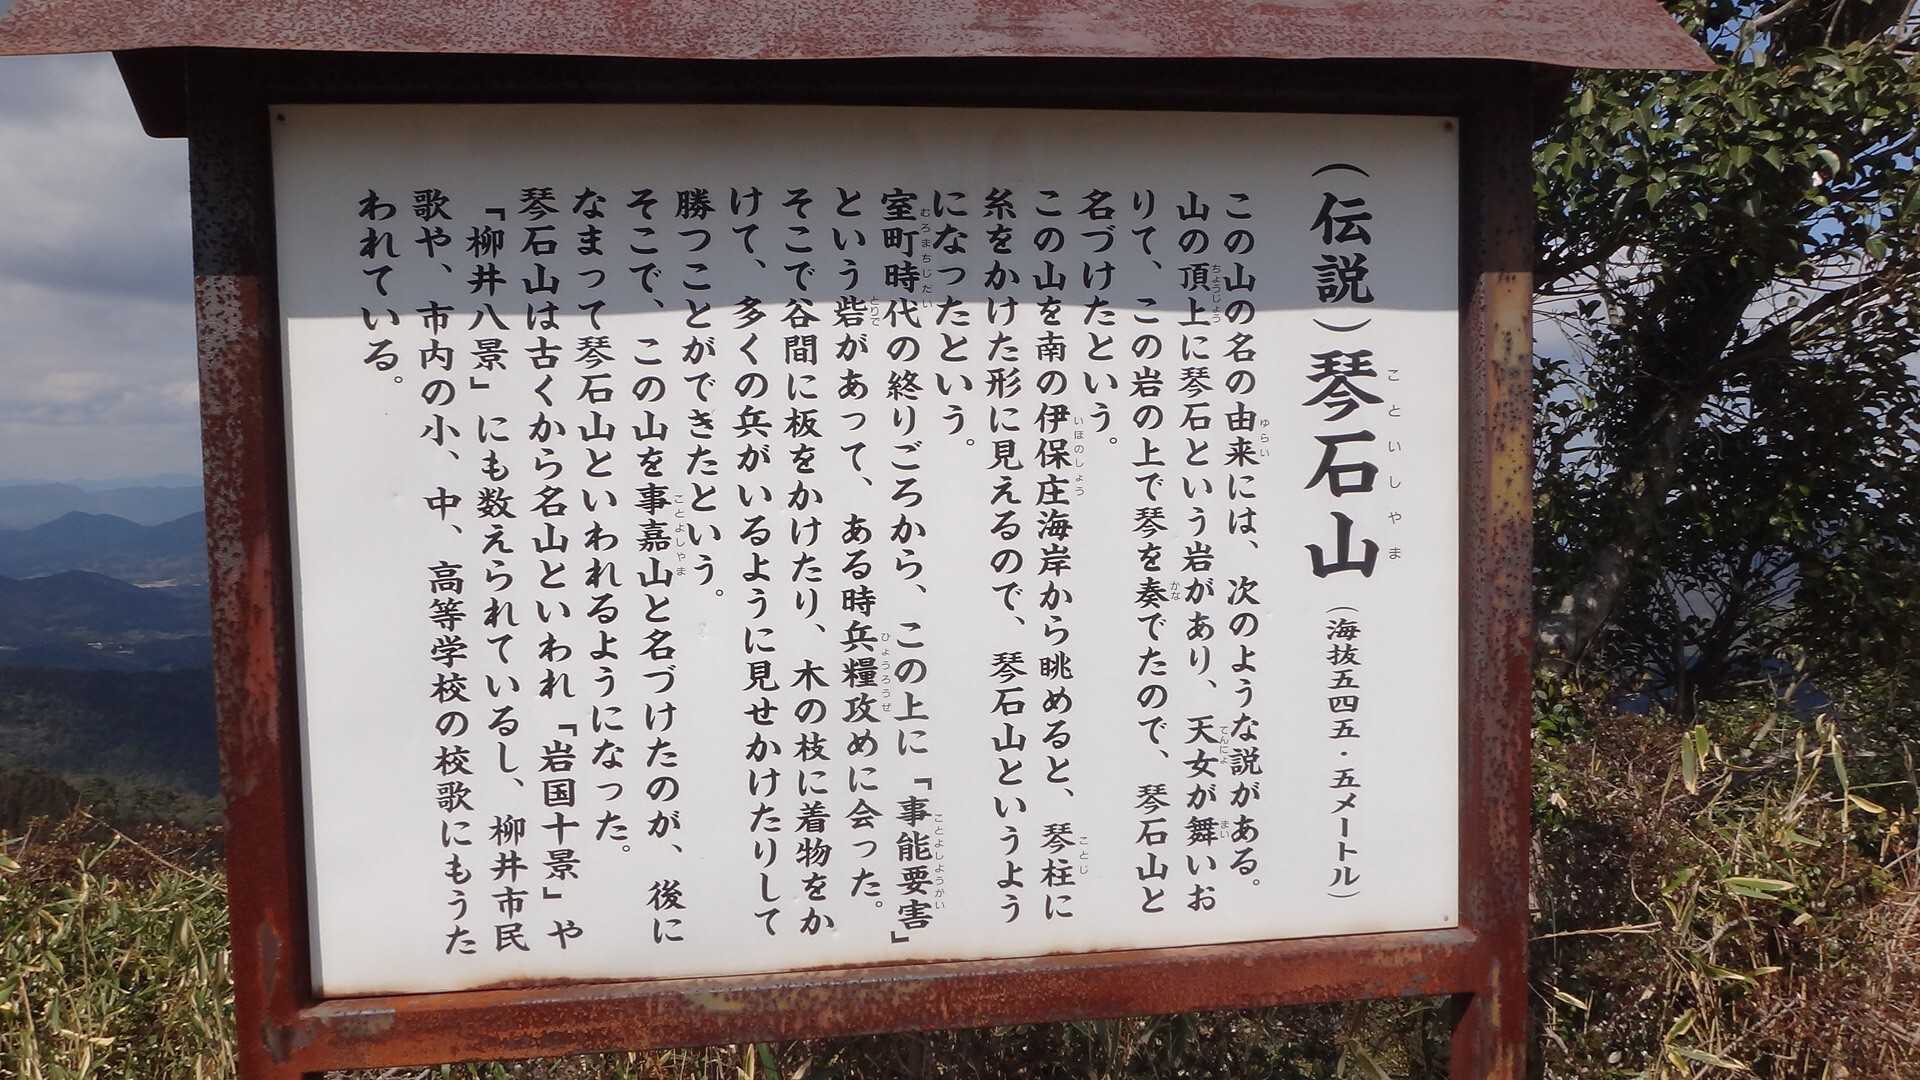 （伝説）琴石山（海抜五四五・五メートル）
ことい​しやま
この山の名の由来には、次のような説がある。
ゆらい
山の頂上に琴石という岩があり、天女が舞いお
ちょうじょう
てんにょ
まい
りて、この岩の上で琴を奏でたので、琴石山と
かな
名づけたという。
この山を南の伊保庄海岸から眺めると、琴柱に
いほのしょう
ことじ
糸をかけた形に見えるので、琴石山というよう
になったという。
室町時代の終りごろから、この上に「事能要害」
むろまちじだい
ことよしようかい
という砦があって、ある時兵糧攻めに会った。
とりで
ひょうろうぜ
そこで谷間に板をかけたり、木の枝に着物をか
けて、多くの兵がいるように見せかけたりして
勝つことができたという。
そこで、この山を事嘉山と名づけたのが、後に
ことよしやま
なまって琴石山といわれるようになった。
琴石山は古くから名山といわれ「岩国十景」や
「柳井八景」にも数えられているし、柳井市民
歌や、市内の小、中、高等学校の校歌にもうた
われている。